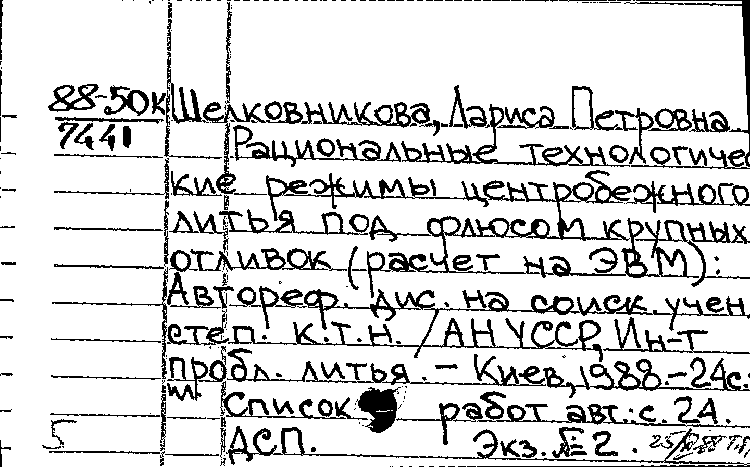 88-50к Шелковникова, Лариса Петровна
7441 Рациональные технологичес
кие режимы центробежного
литья под флюсом крупных
отливок (расчет на ЭВМ):
Автореф. дис. на соиск. учен.
степ. к.т.н. /АН УССР, Ин-т
пробл. литья. - Киев, 1988. - 24с.:
ил
Список работ авт.: с. 24.
5 ДСП. Экз. № 2.